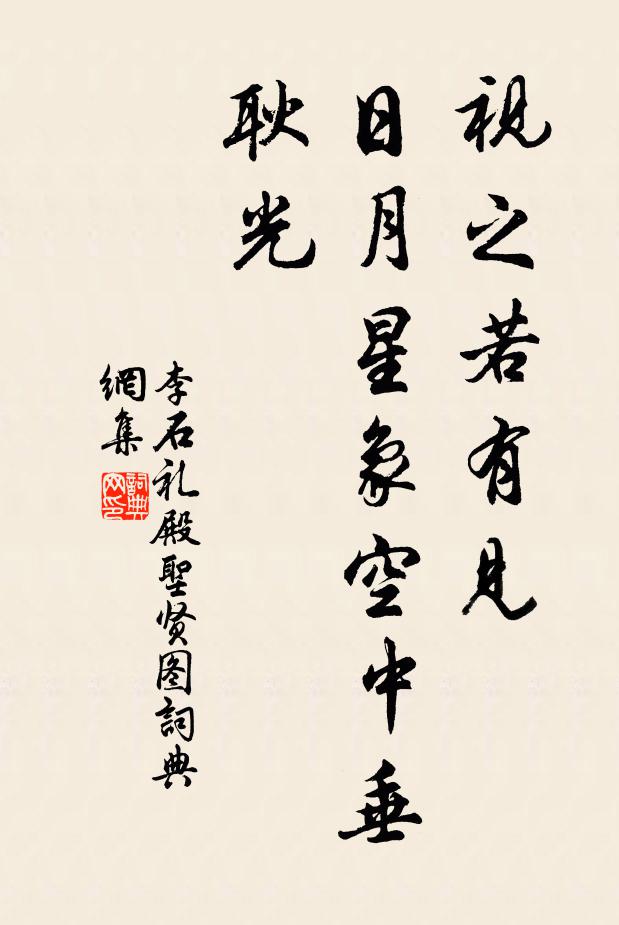 視之若有見
日月星象空中垂
耿光
李石礼殿聖贤图詞典
網集
詞典
网印